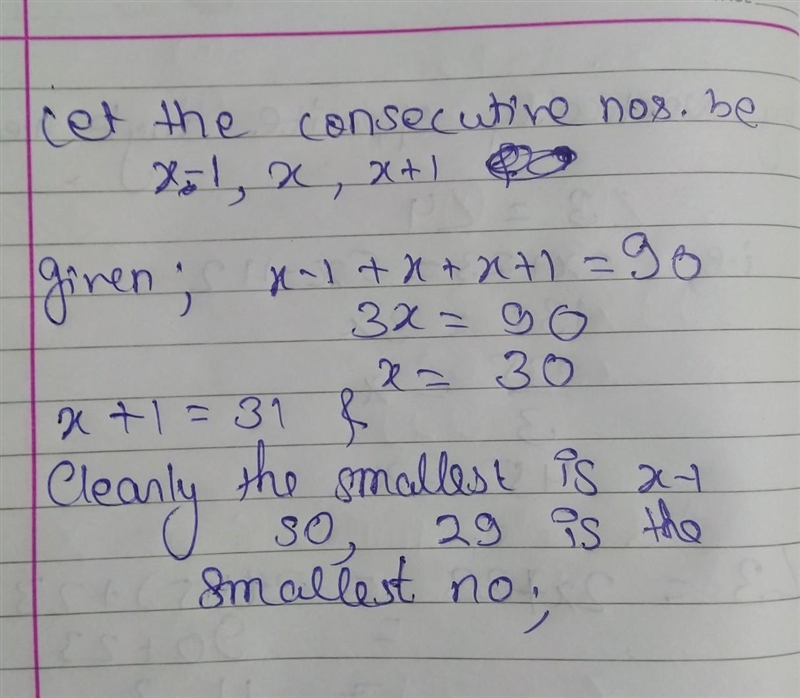 Let the consecutive nos. be
x-1, x, x+1
given; x-1+x+x+1=90
3x= 90
x= 30
x+1=31 &
Clearly the smallest is x-1
so, 29 is the
smallest no;